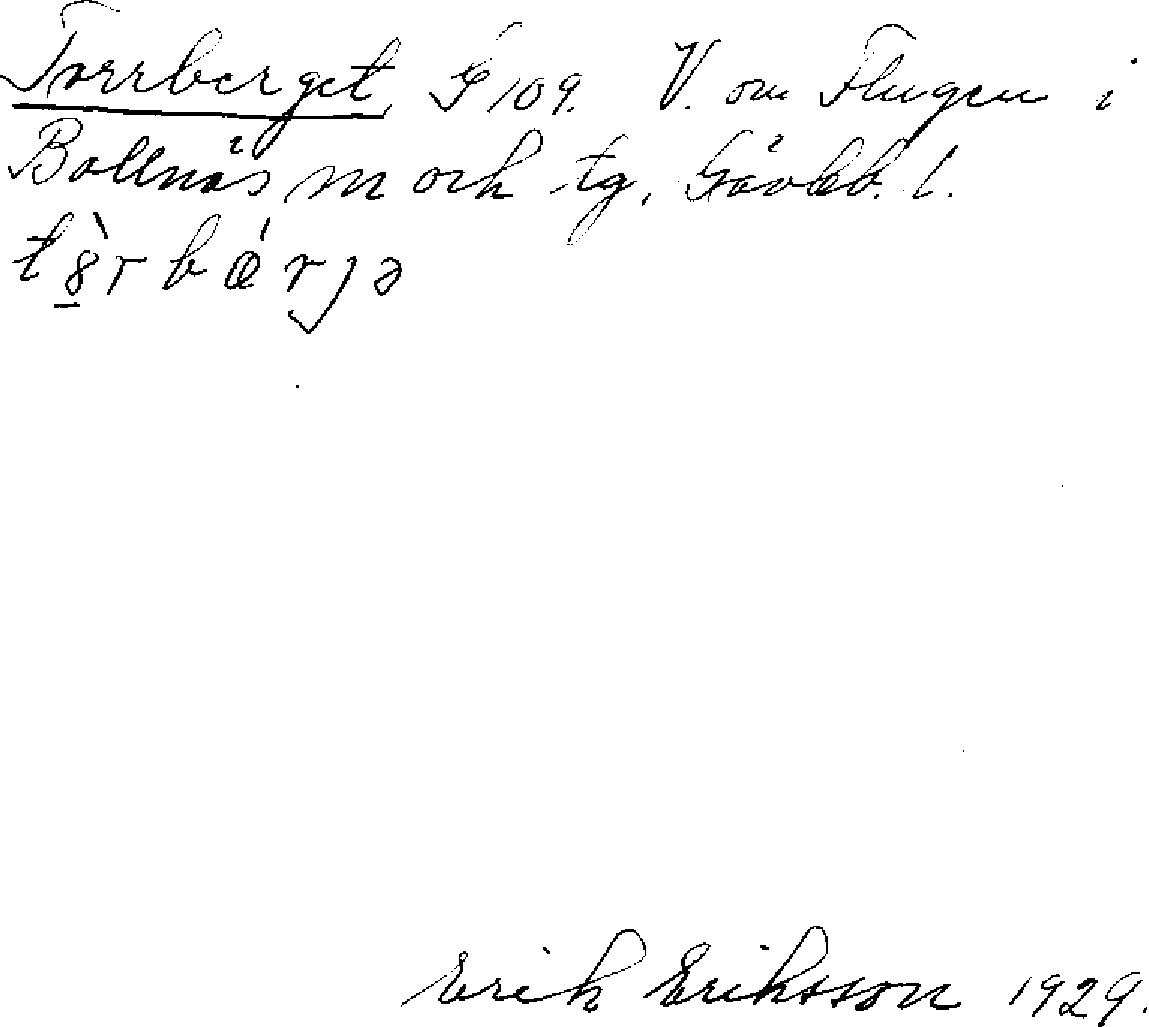 Torrberget, G 109. V. om Flugen i
Bollnäs m och tg, Gävleb. l.
tèrbǽrjə
Erik Eriksson 1929.